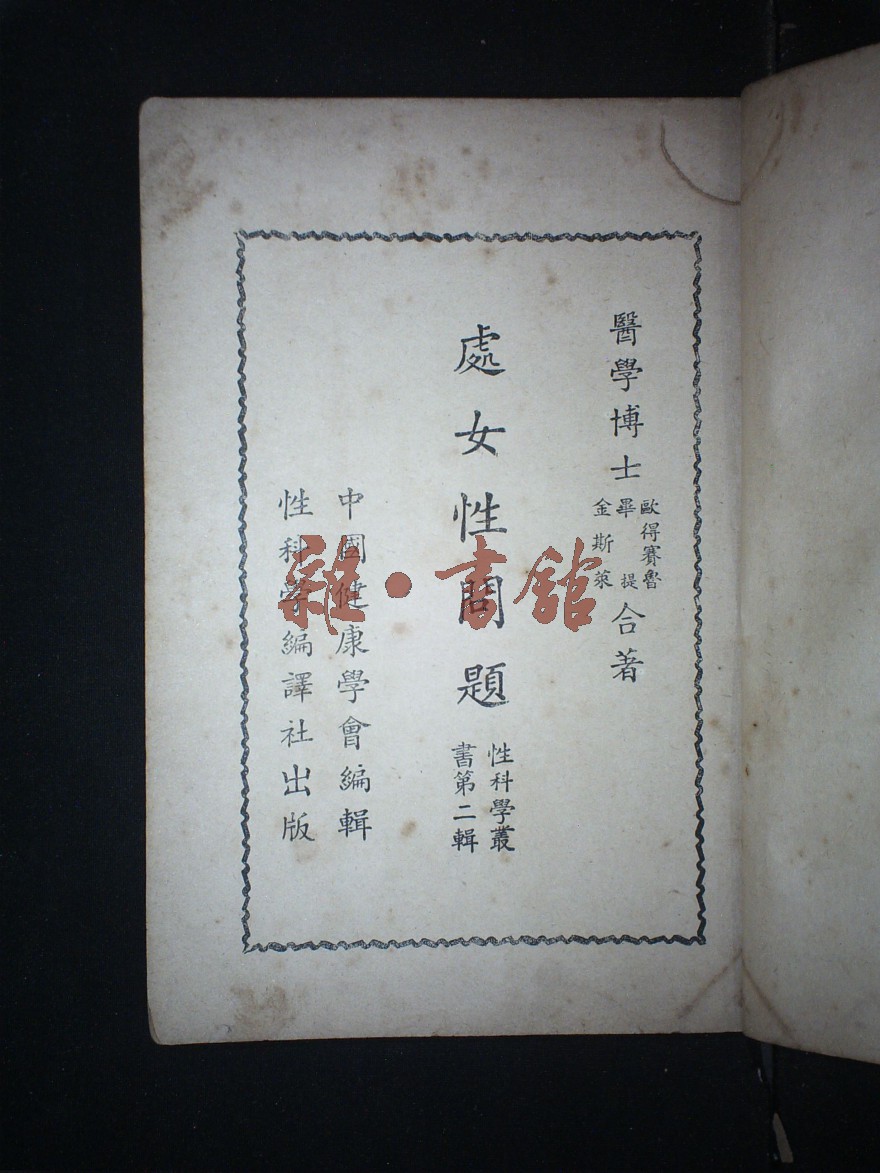 醫學博士
歐得賽魯
畢提
金斯萊
合著
處女性問題
性科學叢
書第二輯
中國健康學會編輯
性科學編譯社出版
雜·書館